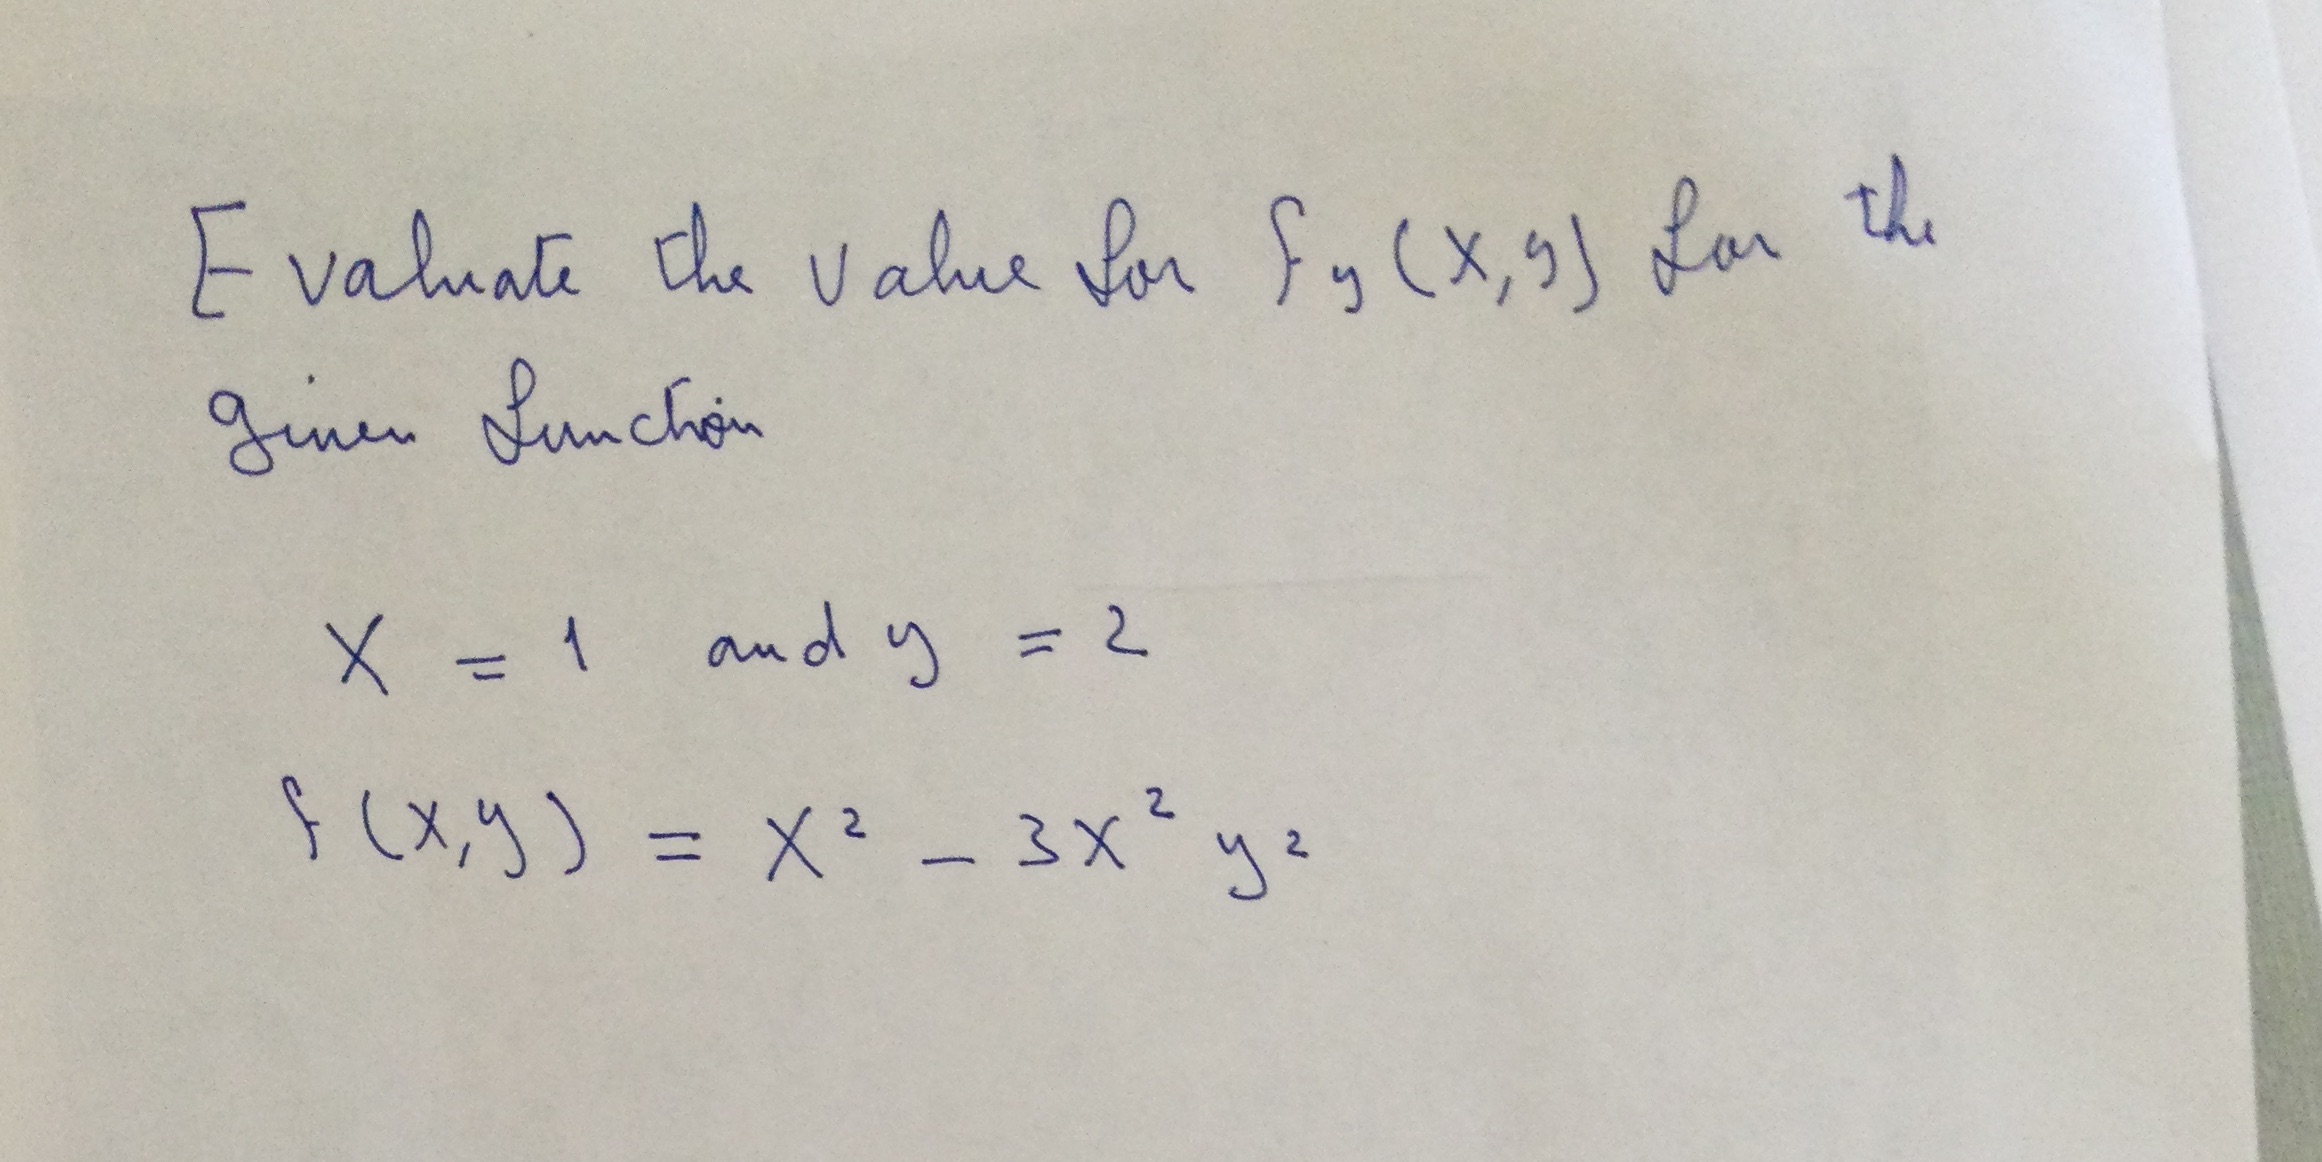 Evaluate the value for fy(x,y) for the
given function
x = 1 and y = 2
f(x,y) = x² - 3x² y²